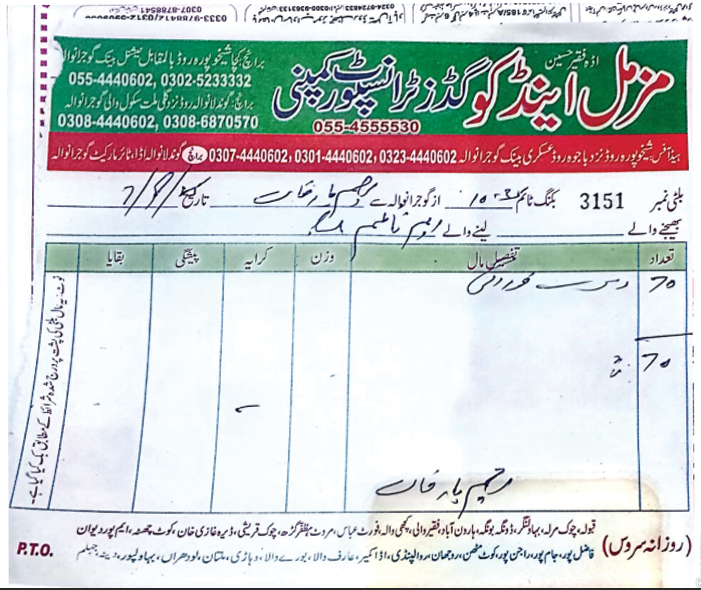 0333-9788541
0307-8788541
اڈہ فقیر حسین
مزمل اینڈ کو گڈز ٹرانسپورٹ کمپنی
055-4555530
برانچ: کچا شیخوپورہ روڈ بالمقابل نیشنل بینک گوجرانوالہ
055-4440602, 0302-5233332
برانچ: گوندلانوالہ روڈ نزد گلی ملت سکول والی گوجرانوالہ
0308-4440602, 0308-6870570
ہیڈ آفس: شیخوپورہ روڈ نزد باجوہ روڈ عسکری بینک گوجرانوالہ 0323-4440602, 0301-4440602, 0307-4440602 برانچ گوندلانوالہ اڈا، ٹائر مارکیٹ گوجرانوالہ
بلٹی نمبر 3151 بکنگ ٹائم از گوجرانوالہ سے رحیم یار خان تاریخ
بھیجنے والے لینے والے
تعداد تفصیل مال وزن کرایہ پیشگی بقایا
70
70
رحیم یار خان
نوٹ: یہ مال بلٹی کی پشت پر درج شدہ شرائط کے مطابق بک کیا گیا ہے۔
(روزانہ سروس) قبولہ، چوک مرلہ، بہاولنگر، ڈونگہ بونگہ، ہارون آباد، فقیر والی، کھچی والہ، فورٹ عباس، مروٹ، مظفر گڑھ، چوک قریشی، ڈیرہ غازی خان، کوٹ چھٹہ، ایم پور دیوان
فاضل پور، جام پور، راجن پور، کوٹ مٹھن، روجھان، راولپنڈی، اڈا کمیر، عارف والا، بورے والا، وہاڑی، ملتان، لودھراں، بہاولپور، دینہ جہلم
P.T.O.